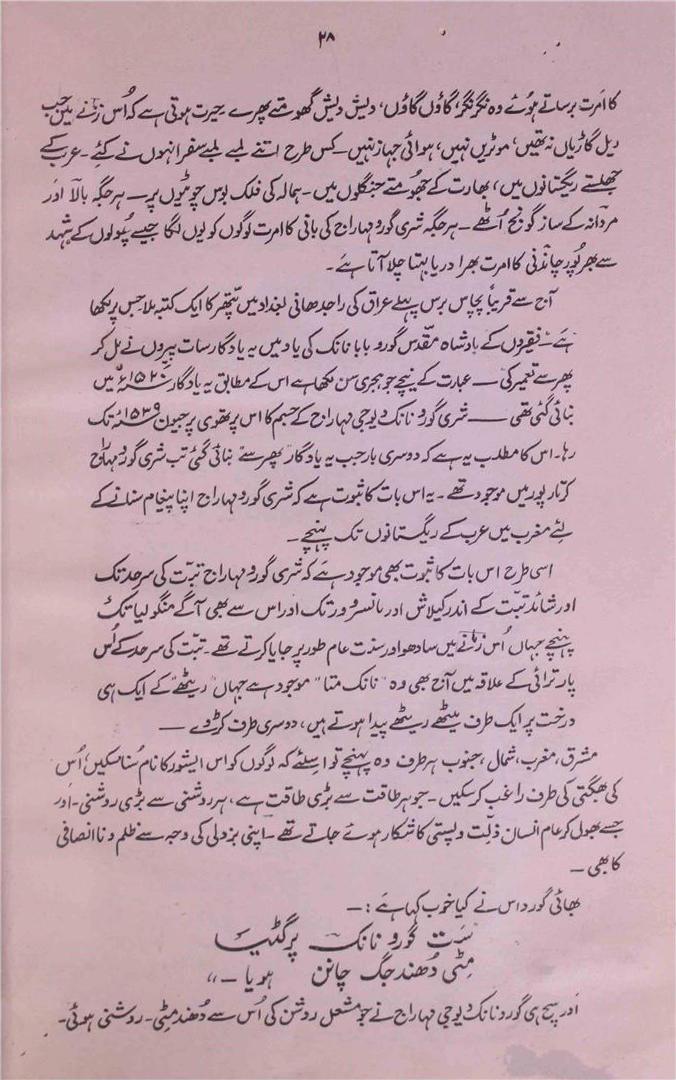 ۲۸
کا اَمرت برساتے ہُوئے وہ نگر نگر، گاؤں گاؤں، دیش دیش گھومتے پھرے۔ حیرت ہوتی ہے کہ اُس زمانے میں جب
ریل گاڑیاں نہ تھیں، موٹریں نہیں، ہوائی جہاز نہیں۔ کس طرح اتنے لمبے لمبے سفر انہوں نے کئے۔ عرب کے
جھلستے ریگستانوں میں، بھارت کے جھومتے جنگلوں میں۔ ہمالہ کی فلک بوس چوٹیوں پر۔ ہر جگہ بالا اور
مردانہ کے ساز گونج اُٹھے۔ ہر جگہ شری گورو مہاراج کی بانی کا امرت لوگوں کو یوں لگا جیسے پھولوں کے شہد
سے بھرپُور چاندنی کا امرت بھرا دریا بہتا چلا آتا ہے۔
آج سے قریباً پچاس برس پہلے عراق کی راجدھانی بغداد میں پتھر کا ایک کتبہ ملا جس پر لکھا
ہے۔ فقیروں کے بادشاہ مقدس گورو بابا نانک کی یاد میں یہ یادگار سات پیروں نے مل کر
پھر سے تعمیر کی —— عبارت کے نیچے جو ہجری سن لکھا ہے اس کے مطابق یہ یادگار ۱۵۲۰ء میں
بنائی گئی تھی —— شری گورو نانک دیوجی مہاراج کے جسم کا اس پرتھوی پر جیون ۱۵۳۹ء تک
رہا۔ اس کا مطلب یہ ہے کہ دوسری بار جب یہ یادگار "پھر سے" بنائی گئی تب شری گورو مہاراج
کرتارپور میں موجود تھے۔ یہ اس بات کا ثبوت ہے کہ شری گورو مہاراج اپنا پیغام سنانے کے
لئے مغرب میں عرب کے ریگستانوں تک پہنچے۔
اسی طرح اس بات کا ثبوت بھی موجود ہے کہ شری گورو مہاراج تبت کی سرحد تک
اور شائد تبت کے اندر کیلاش اور مانسرور تک اور اس سے بھی آگے منگولیا تک
پہنچے جہاں اُس زمانے میں سادھو اور سنت عام طور پر جایا کرتے تھے۔ تبت کی سرحد کے اُس
پار ترائی کے علاقہ میں آج بھی وہ "نانک متا" موجود ہے جہاں "ریٹھے" کے ایک ہی
درخت پر ایک طرف میٹھے ریٹھے پیدا ہوتے ہیں، دوسری طرف کڑوے ——
مشرق، مغرب، شمال، جنوب ہر طرف وہ پہنچے تو اسلئے کہ لوگوں کو اس ایشور کا نام سُنا سکیں، اُس
کی بھگتی کی طرف راغب کر سکیں۔ جو ہر طاقت سے بڑی طاقت ہے، ہر روشنی سے بڑی روشنی۔ اور
جسے بھول کر عام انسان ذلّت و پستی کا شکار ہوئے جاتے تھے۔ اپنی بزدلی کی وجہ سے ظلم و ناانصافی
کا بھی —
بھائی گورداس نے کیا خوب کہا ہے:—
سَت گورو نانک پرگٹیا
مِٹی دُھند جگ چانن ہویا —"
اور سچ ہی گورو نانک دیوجی مہاراج نے جو مشعل روشن کی اُس سے دُھند مِٹی۔ روشنی ہوئی۔